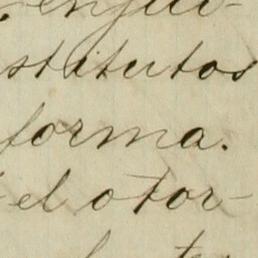 stitutos
forma.
el otor-